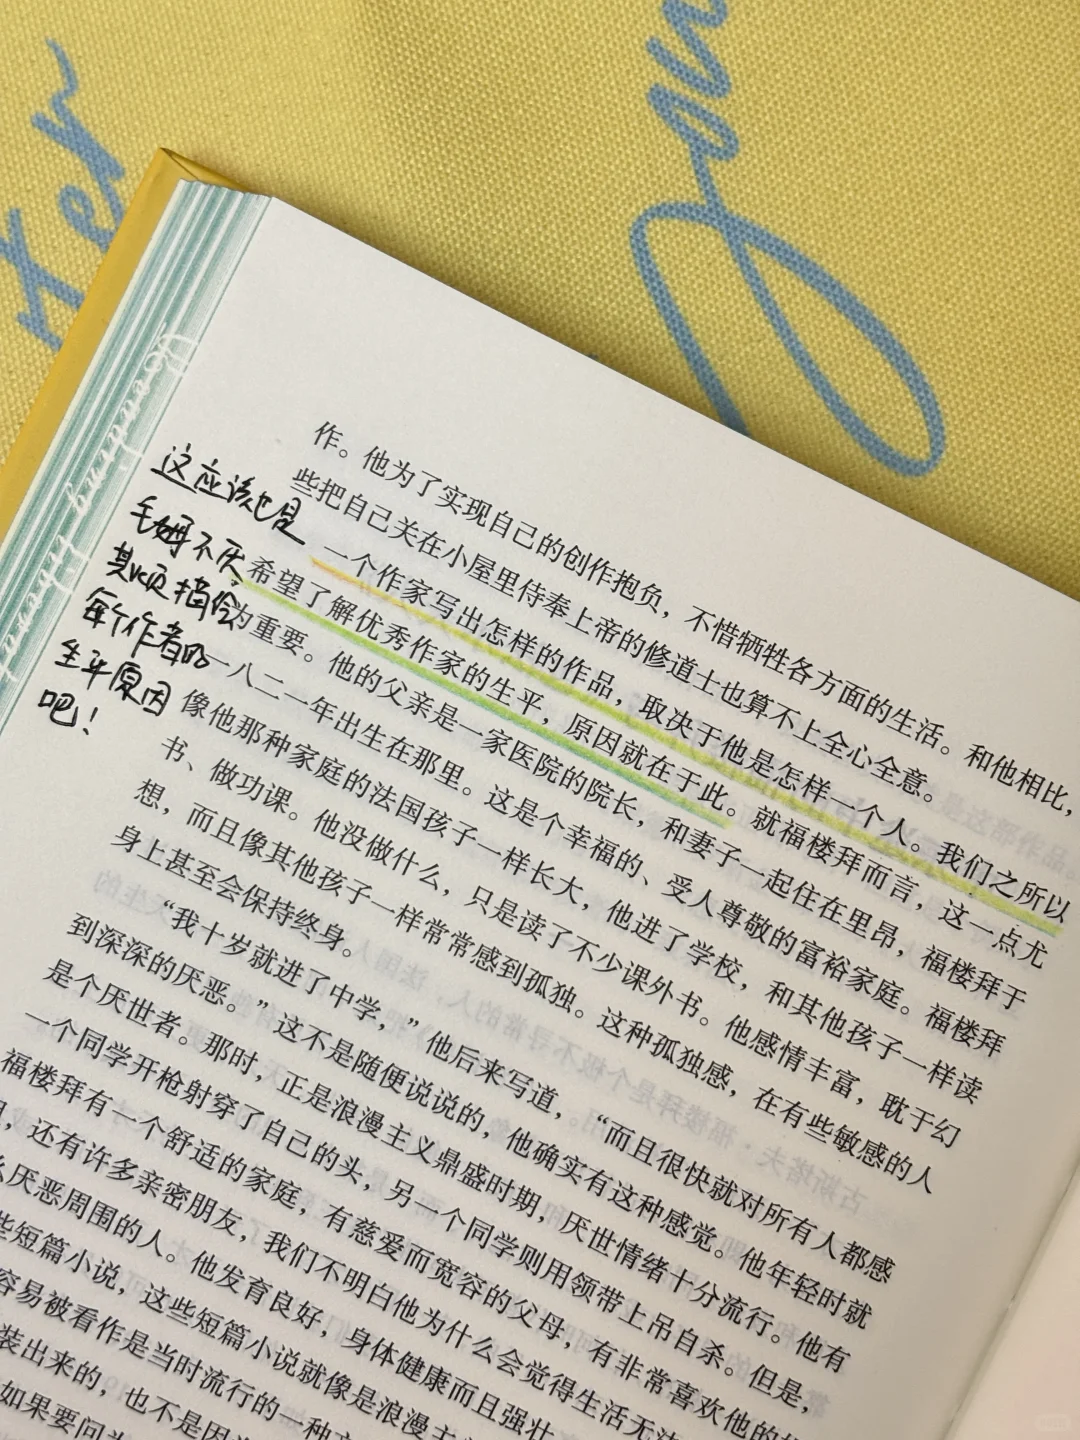 作。他为了实现自己的创作抱负，不惜牺牲各方面的生活。和他相比，
些把自己关在小屋里侍奉上帝的修道士也算不上全心全意。
一个作家写出怎样的作品，取决于他是怎样一个人。我们之所以
希望了解优秀作家的生平，原因就在于此。就福楼拜而言，这一点尤
为重要。他的父亲是一家医院的院长，和妻子一起住在里昂，福楼拜于
一八二一年出生在那里。这是个幸福的、受人尊敬的富裕家庭。福楼拜
像他那种家庭的法国孩子一样长大，他进了学校，和其他孩子一样读
书、做功课。他没做什么，只是读了不少课外书。他感情丰富，耽于幻
想，而且像其他孩子一样常常感到孤独。这种孤独感，在有些敏感的人
身上甚至会保持终身。
“我十岁就进了中学，”他后来写道，“而且很快就对所有人都感
到深深的厌恶。”这不是随便说说的，他确实有这种感觉。他年轻时就
是个厌世者。那时，正是浪漫主义鼎盛时期，厌世情绪十分流行。他有
一个同学开枪射穿了自己的头，另一个同学则用领带上吊自杀。但是，
福楼拜有一个舒适的家庭，有慈爱而宽容的父母，有非常喜欢他的
，还有许多亲密朋友，我们不明白他为什么会觉得生活无法
厌恶周围的人。他发育良好，身体健康而且强壮
些短篇小说，这些短篇小说就像是浪漫主
容易被看作是当时流行的一种
装出来的，也不是因
如果要问
这应该也是
毛姆不厌
其烦描绘
每个作者的
生平原因
吧！